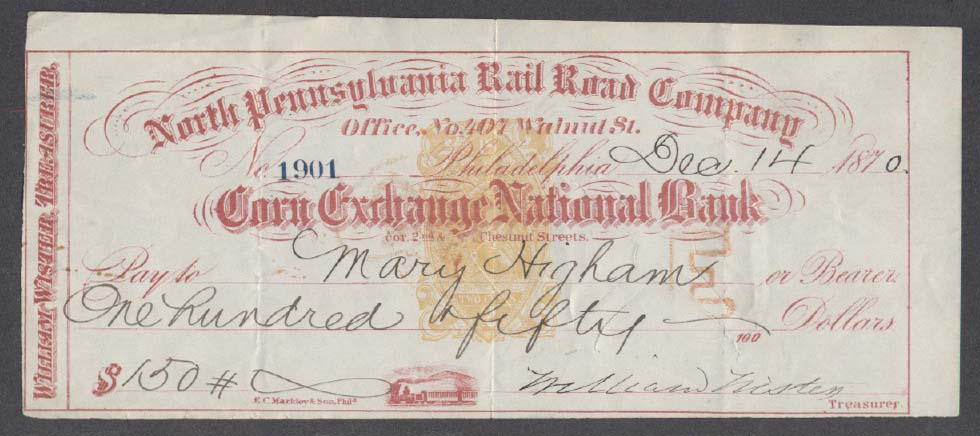 WILLIAM WISTER, TREASURER.
North Pennsylvania Rail Road Company
Office, No. 407 Walnut St.
No. 1901 Philadelphia Dec. 14 1870.
Corn Exchange National Bank
Cor. 2nd & Chestnut Streets.
Pay to Mary Higham or Bearer
One hundred & fifty 100 Dollars
$150 #
William Wister
E.C. Markley & Son, Phila
Treasurer.
TWO